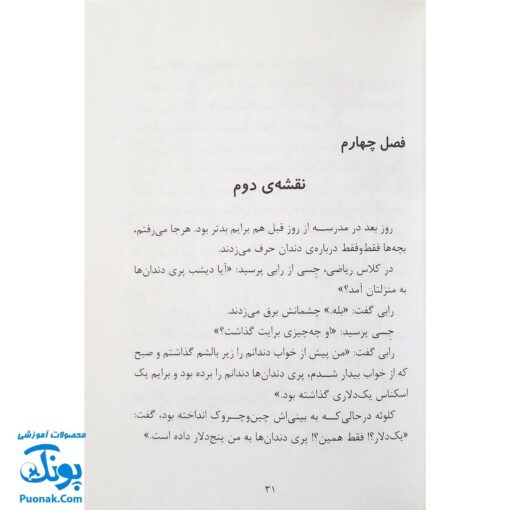 فصل چهارم
نقشه‌ی دوم
روز بعد در مدرسه از روز قبل هم برایم بدتر بود. هرجا می‌رفتم،
بچه‌ها فقط‌وفقط درباره‌ی دندان حرف می‌زدند.
در کلاس ریاضی، جِسی از رابی پرسید: «آیا دیشب پری دندان‌ها
به منزلتان آمد؟»
رابی گفت: «بله.» چشمانش برق می‌زدند.
جِسی پرسید: «او چه‌چیزی برایت گذاشت؟»
رابی گفت: «من پیش از خواب دندانم را زیر بالشم گذاشتم و صبح
که از خواب بیدار شدم، پری دندان‌ها دندانم را برده بود و برایم یک
اسکناس یک‌دلاری گذاشته بود.»
کلوئه درحالی‌که به بینی‌اش چین‌وچروک انداخته بود، گفت:
«یک‌دلار؟! فقط همین؟! پری دندان‌ها به من پنج‌دلار داده است.»
۳۱
محصولات آموزشی
پونک
Puonak.Com